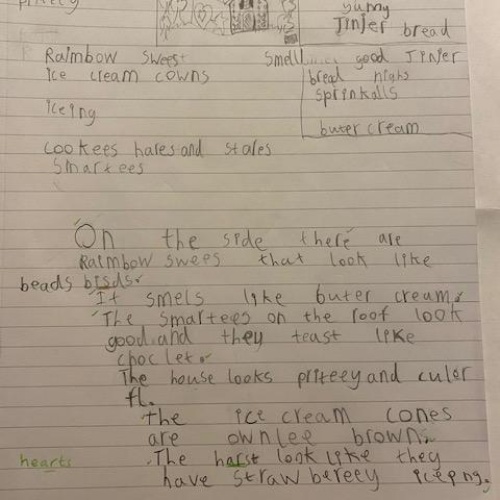 yumy
Jinjer bread
Raimbow sweest smell...... good Jinjer
ice cream cowns bread nighs
sprinkalls
iceing
buter cream
cookees hares and stales
Smartees
On the side there are
Raimbow swees that look like
beads bisds.
It smels like buter cream.
The smartees on the roof look
good and they teast like
choclet.
The house looks priteey and culer
fl.
the ice cream cones
are ownlee brown.
hearts The harst look like they
have strawbereey iceing.